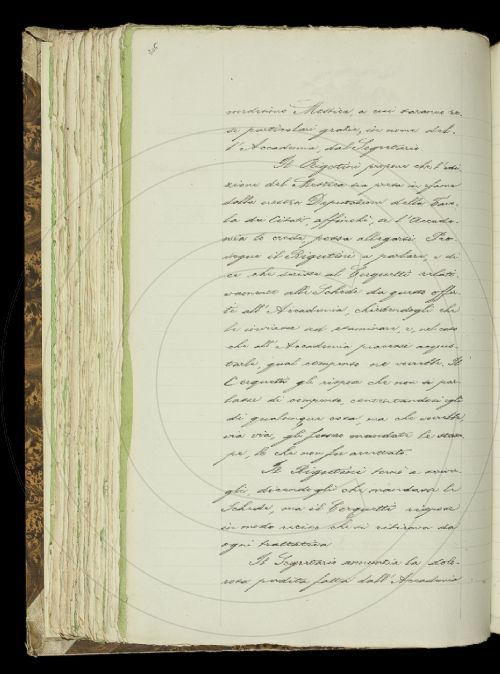 medesimo Mestica, a cui saranno re-
se particolari grazie, in nome del-
l'Accademia, dal Segretario.
Il Rigutini propone che l'edi-
zione del Mestica sia presa in esame
dalla nostra Deputazione della Tavo-
la dei Citati, affinchè, se l'Accade-
mia lo creda, possa allegarsi. Pro-
segue il Rigutini a parlare, e di-
ce che scrisse al Cerquetti relati-
vamente alle Schede da questo offer-
te all'Accademia, chiedendogli che
le inviasse ad esaminare, e, nel caso
che all'Accademia piacesse acquis-
tarle, qual compenso ne vorrebbe. Il
Cerquetti gli rispose che non si par-
lasse di compenso, contentandosi egli
di qualunque cosa, ma che vorrebbe,
via via, gli fossero mandate le stam-
pe, le che non fu accettato.
Il Rigutini tornò a scriver-
gli, dicendogli che mandasse le
Schede, ma il Cerquetti rispose
in modo reciso che si ritirava da
ogni trattativa.
Il Segretario annunzia la dolo-
rosa perdita fatta dall'Accademia